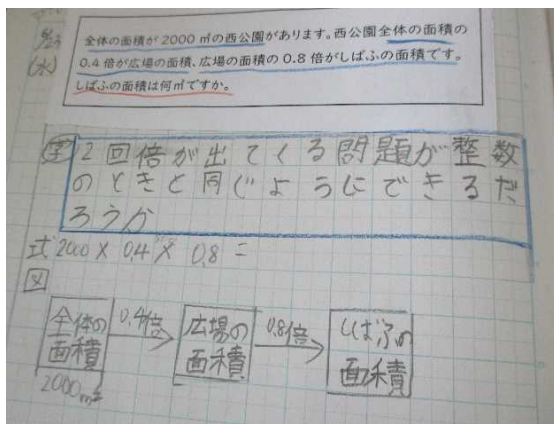 (水)
全体の面積が 2000 ㎡の西公園があります。西公園全体の面積の
0.4 倍が広場の面積、広場の面積の 0.8 倍がしばふの面積です。
しばふの面積は何㎡ですか。
学 2回倍が出てくる問題が整数
のときと同じようにできるだ
ろうか
式 2000 × 0.4 × 0.8 =
図
全体の面積 0.4倍 広場の面積 0.8倍 しばふの面積
2000㎡